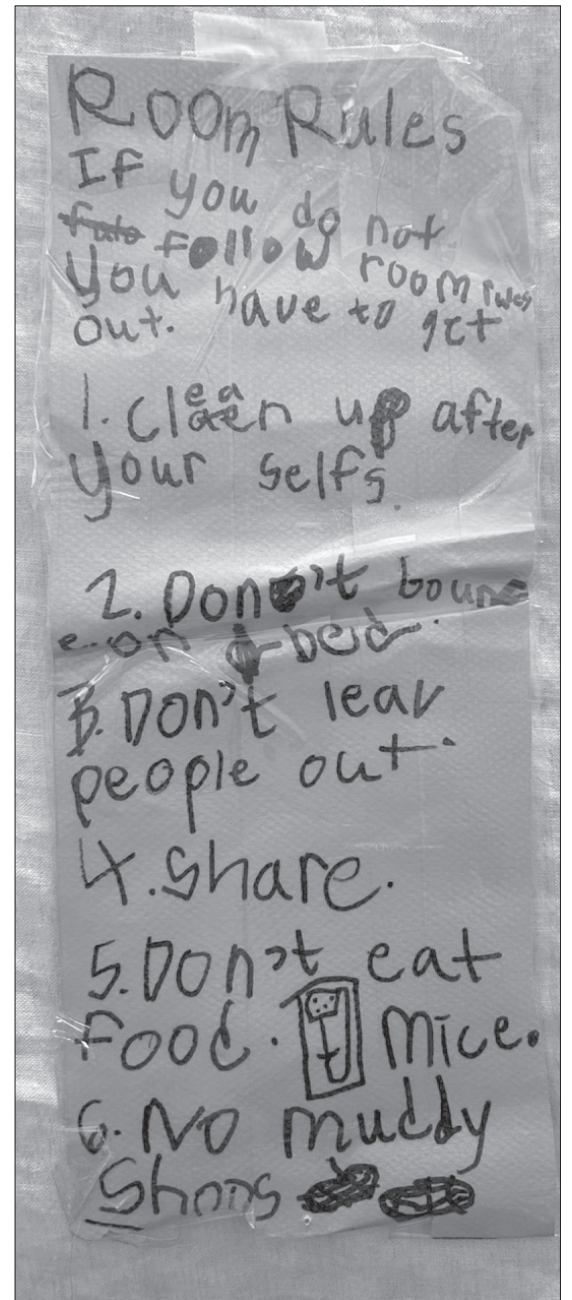 Room Rules
If you do not
follow room rules
you have to get
out.
1. Clean up after
your selfs.
2. Don't boun
e on bed.
3. Don't leav
people out.
4. Share.
5. Don't eat
food. mice.
6. No muddy
Shoos